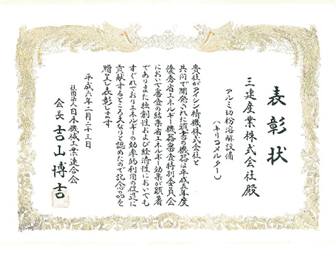 表彰状
三建産業株式会社殿
アルミ切粉溶解設備
(キリコメルター)
貴社がアイシン精機株式会社と
共同で開発された頭書の機器は平成五年度
優秀省エネルギー機器審査特別委員会
において審査の結果省エネルギー効果が顕著
でありまた独創性および経済性においても
すぐれておりエネルギーの効率的利用の促進に
貢献するところ大なりと認めたので記念品を
贈呈し表彰します
平成六年二月二十三日
社団法人日本機械工業連合会
会長 吉山博吉